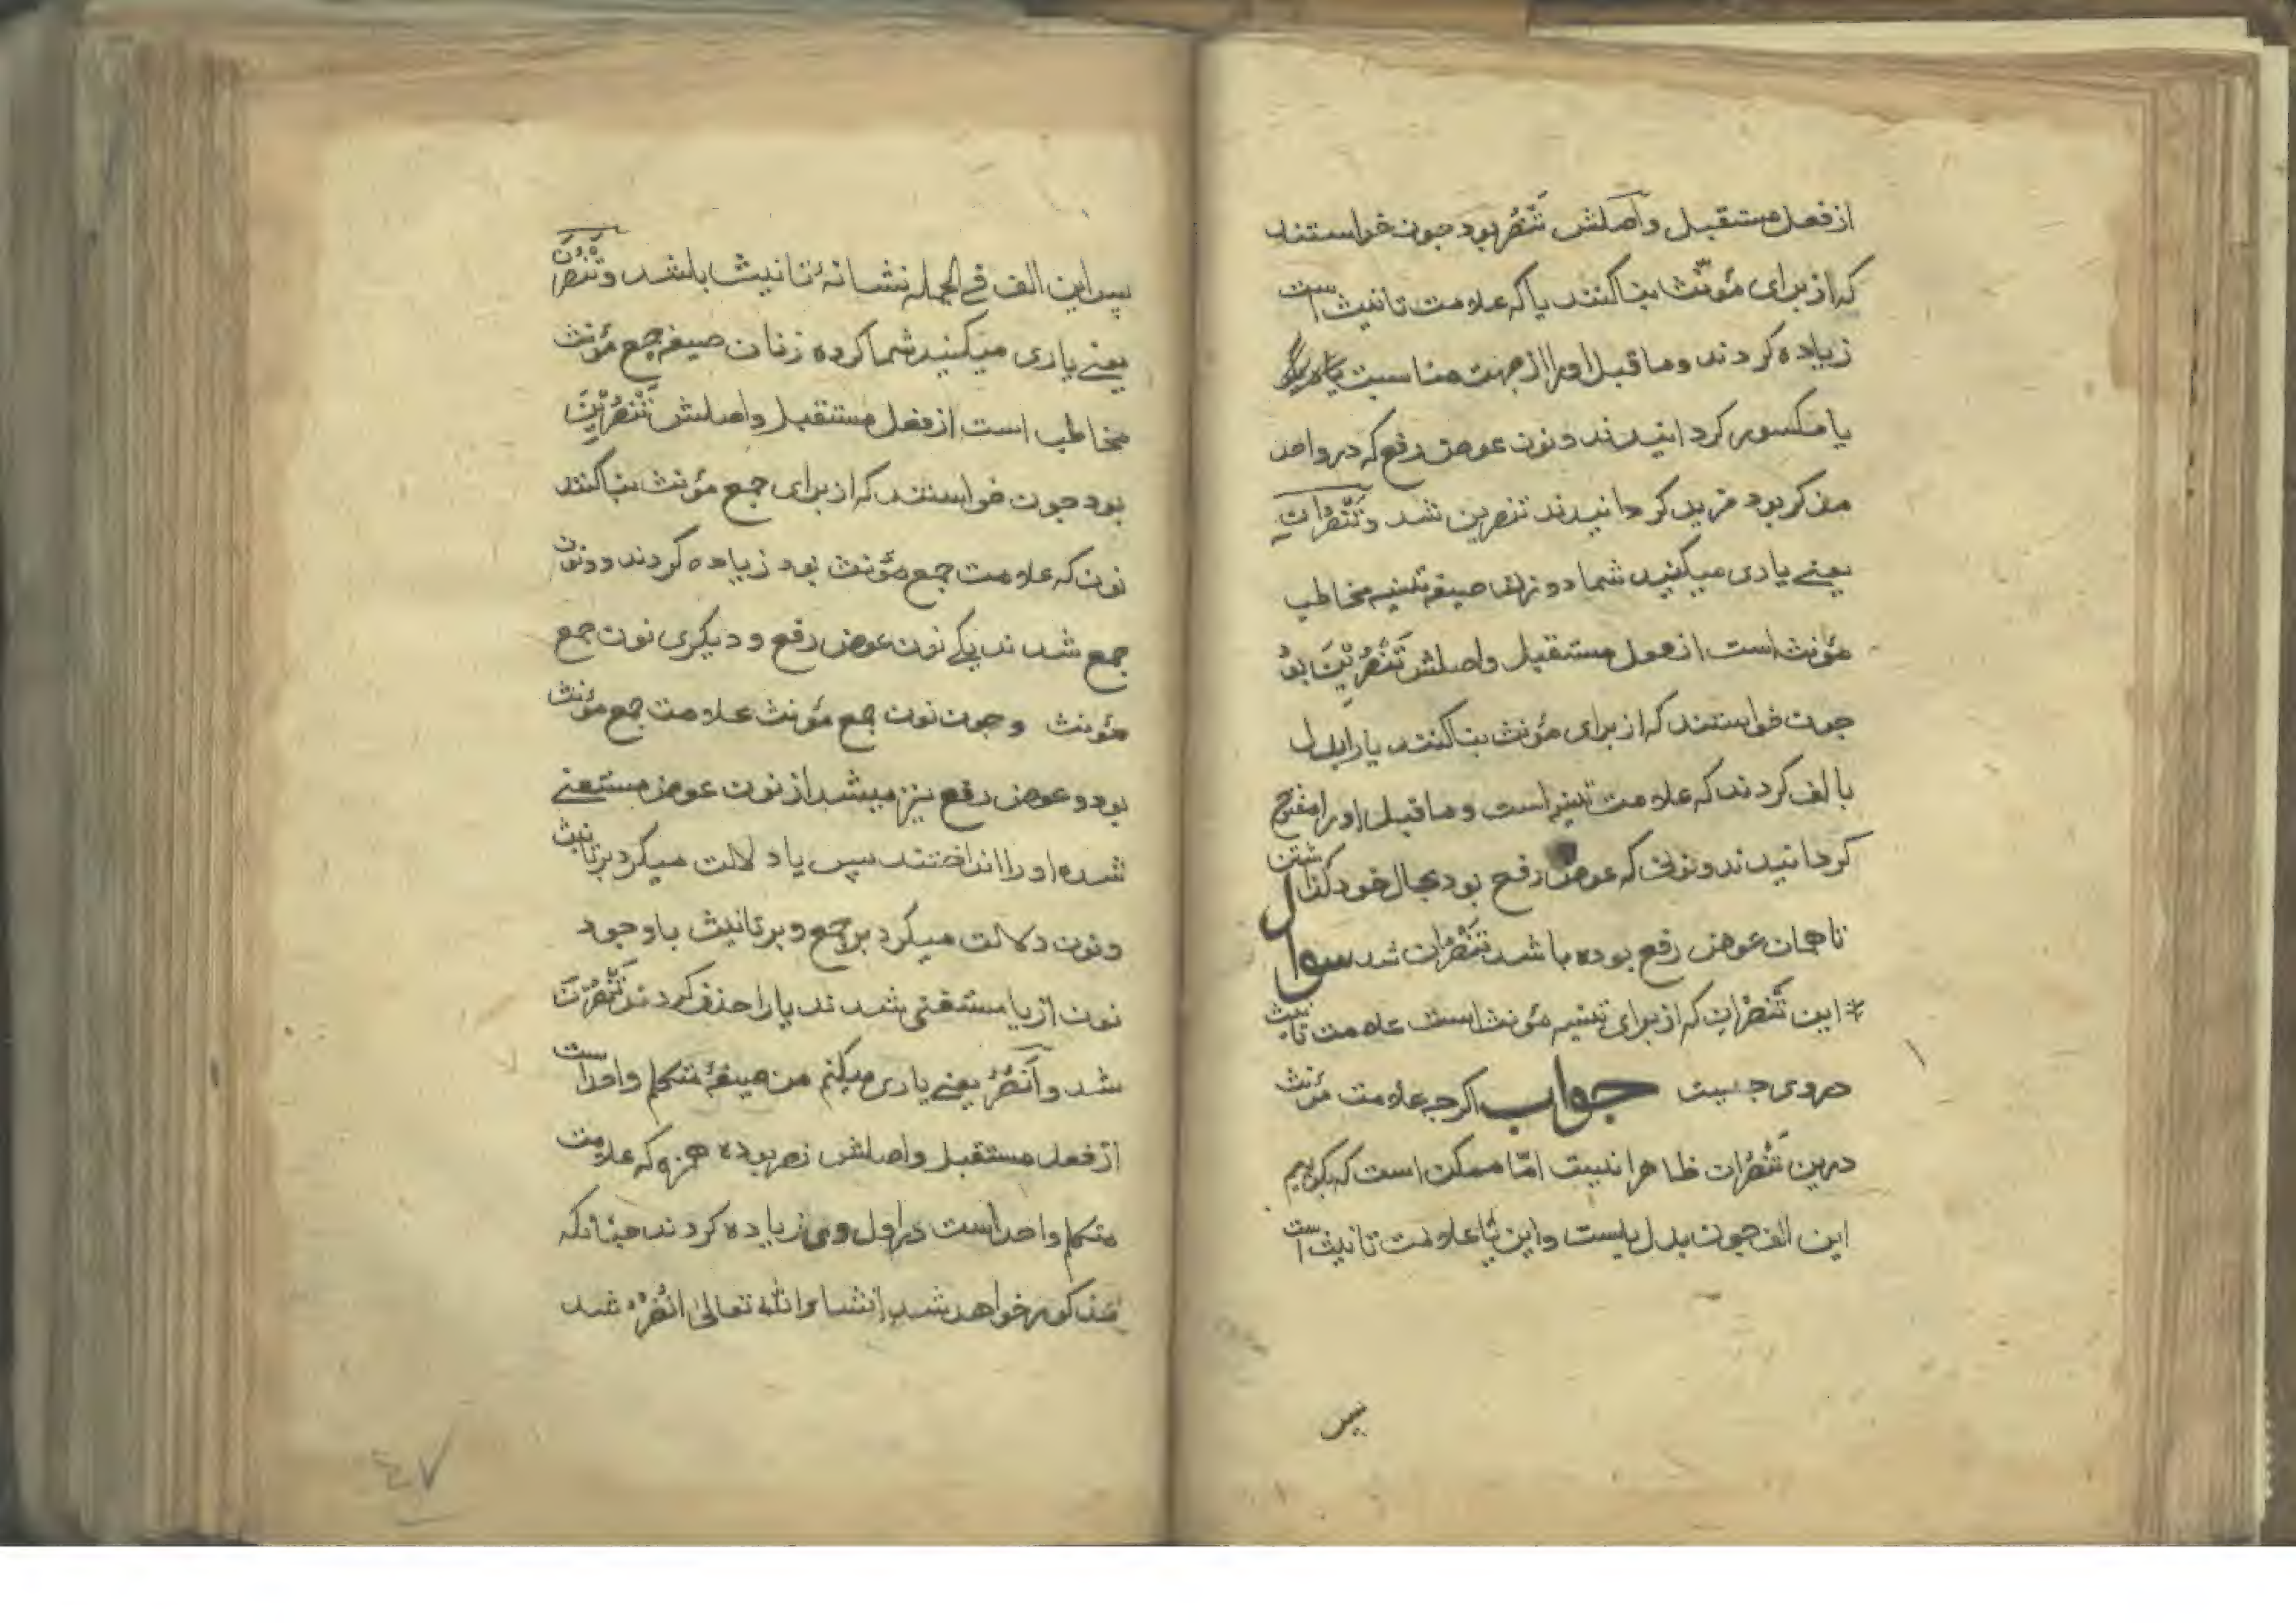 از فعل مستقبل و اصلش تَنْصُرُ بود جون خواستند
که از برای مؤنّث بنا کنند یا که علامت تانیث است
زیاده کردند و ماقبل او را از جهت مناسبت
یا مکسور کردانیدند و نون عوض رفع که در واحد
مذکر بود مزید کردانیدند تنصرین شد و تَنْصُرانِ
یعنے یاری میکنید شما دو زنان صیغه تثنیه مخاطب
مؤنث است از فعل مستقبل و اصلش تَنْصُرِیْنَ بود
جون خواستند که از برای مؤنث بنا کنند یا را بدل
با الف کردند که علامت تثنیه است و ماقبل او را مفتوح
کردانیدند و نونی که عوض رفع بود بحال خود کذاشتن
تا همان عوض رفع بوده باشد تَنْصُرانِ شد سوال
این تَنْصُرانِ که از برای تثنیه مؤنث است علامت تانیث
در وی جیست جواب اکرجه علامت مؤنث
درین تَنْصُران ظاهرا نیست امّا ممکن است که بکوییم
این الف جون بدل یاست و این یا علامت تانیث است
پس
پس این الف فے الجمله نشانهٔ تانیث باشد و تَنْصُرْنَ
یعنے یاری میکنید شما کرده زنان صیغه جمع مؤنث
مخاطب است از فعل مستقبل و اصلش تَنْصُرِیْنَ
بود جون خواستند که از برای جمع مؤنث بنا کنند
نون که علامت جمع مؤنث بود زیاده کردند دو نون
جمع شدند یکے نون عوض رفع و دیکری نون جمع
مؤنث و جون نون جمع مؤنث علامت جمع مؤنث
بود و عوض رفع نیز میشد از نون عوض مستغنے
شده او را انداختند پس یا دلالت میکرد بر تانیث
و نون دلالت میکرد بر جمع و بر تانیث با وجود
نون از یا مستغنی شدند یا را حذف کردند تَنْصُرْنَ
شد و اَنْصُرُ یعنے یاری میکنم من صیغهٔ متکلم واحد است
از فعل مستقبل و اصلش نصر بوده همزه که علامت
متکلم واحد است در اول وی زیاده کردند جنانکه
مذکور خواهد شد انشاء الله تعالیٰ انْصُرُ شد
٤٧